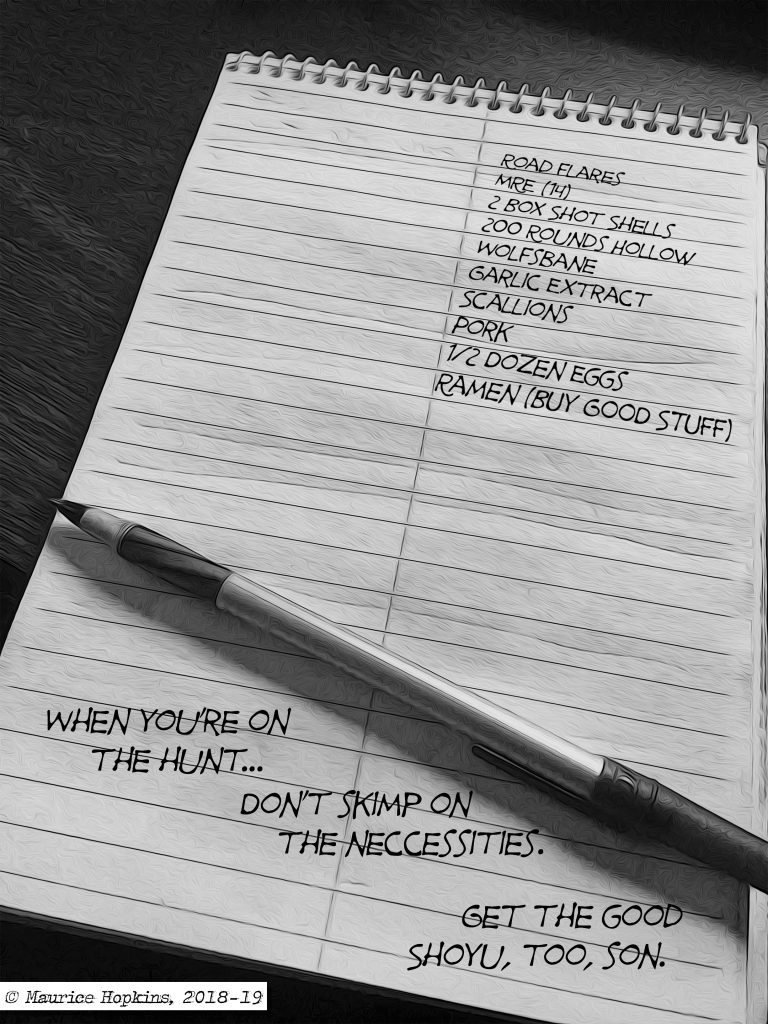 ROAD FLARES
MRE (14)
2 BOX SHOT SHELLS
200 ROUNDS HOLLOW
WOLFSBANE
GARLIC EXTRACT
SCALLIONS
PORK
1/2 DOZEN EGGS
RAMEN (BUY GOOD STUFF)
WHEN YOU'RE ON
THE HUNT...
DON'T SKIMP ON
THE NECCESSITIES.
GET THE GOOD
SHOYU, TOO, SON.
© Maurice Hopkins, 2018-19